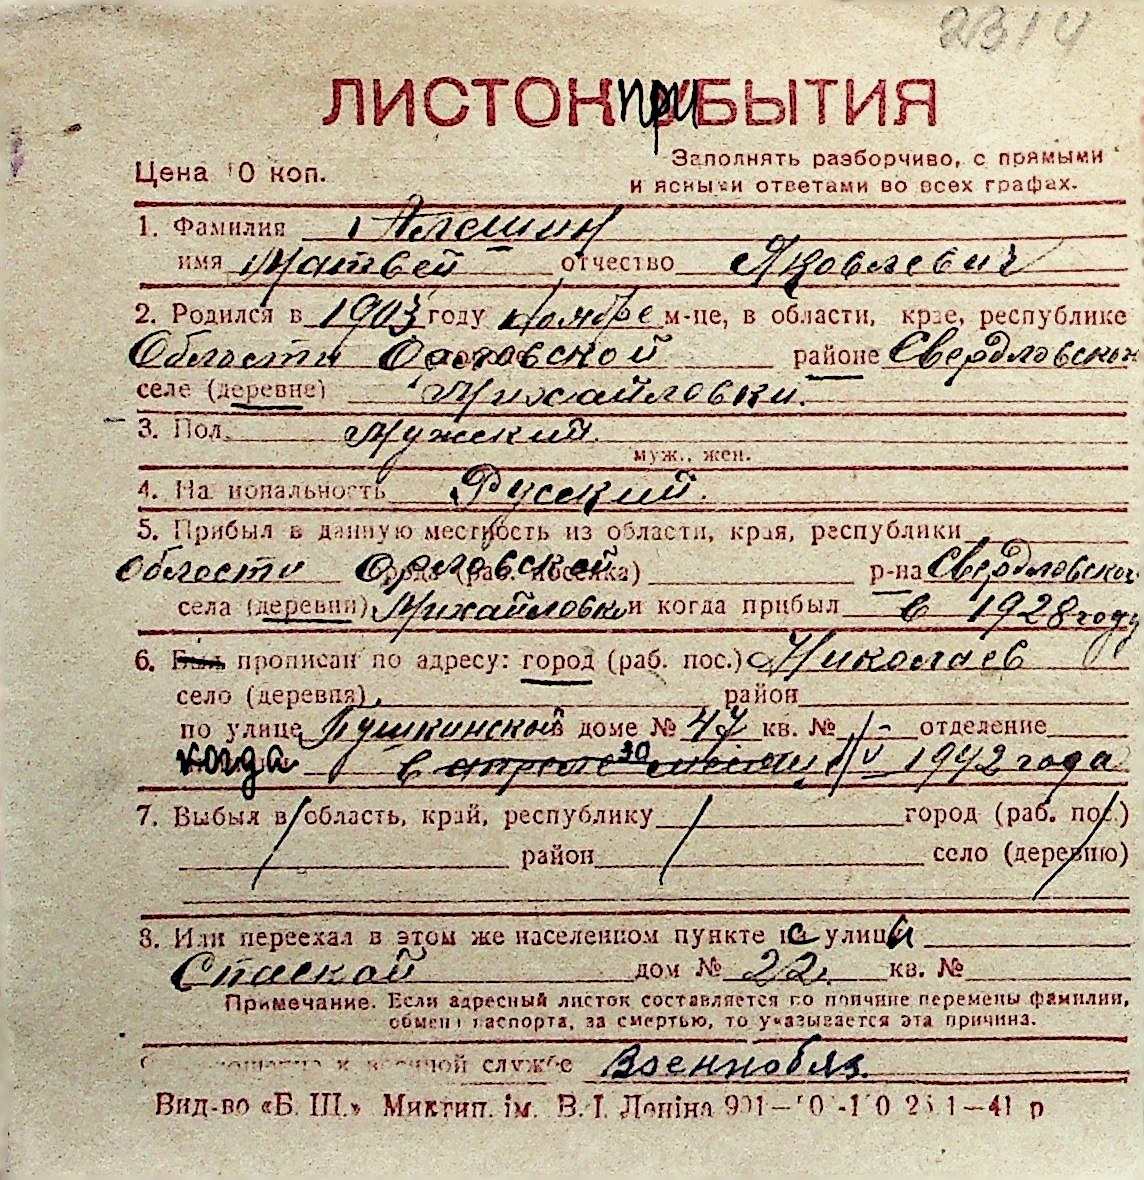 2314
ЛИСТОК при БЫТИЯ
Цена 10 коп.
Заполнять разборчиво, с прямыми
и ясными ответами во всех графах.
1. Фамилия Алешин
имя Матвей отчество Яковлевич
2. Родился в 1903 году ноябре м-це, в области, крае, республике
Области Орловской районе Свердловском
селе (деревне) Михайловки.
3. Пол Мужский.
муж., жен.
4. Национальность Русский.
5. Прибыл в данную местность из области, края, республики
области Орловской города (раб. поселка) р-на Свердловского
села (деревни) Михайловки и когда прибыл в 1928 году
6. Был прописан по адресу: город (раб. пос.) Николаев
село (деревня) район
по улице Пушкинской в доме № 47 кв. № отделение
когда в апреле месяце 30/V 1942 года
7. Выбыл в область, край, республику город (раб. пос.)
район село (деревню)
8. Или переехал в этом же населенном пункте с улицы
Спаской дом № 22. кв. №
Примечание. Если адресный листок составляется по причине перемены фамилии,
обмена паспорта, за смертью, то указывается эта причина.
к военной службе Военнобяз.
Вид-во «Б. Ш.» Миктип. ім. В. І. Леніна